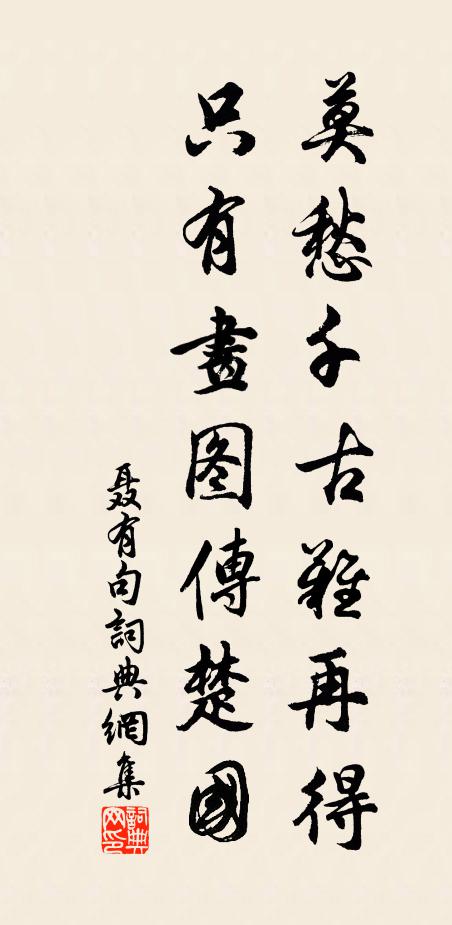 莫愁千古難再得
只有畫图傳楚國
聂有句詞典網集
詞典網印